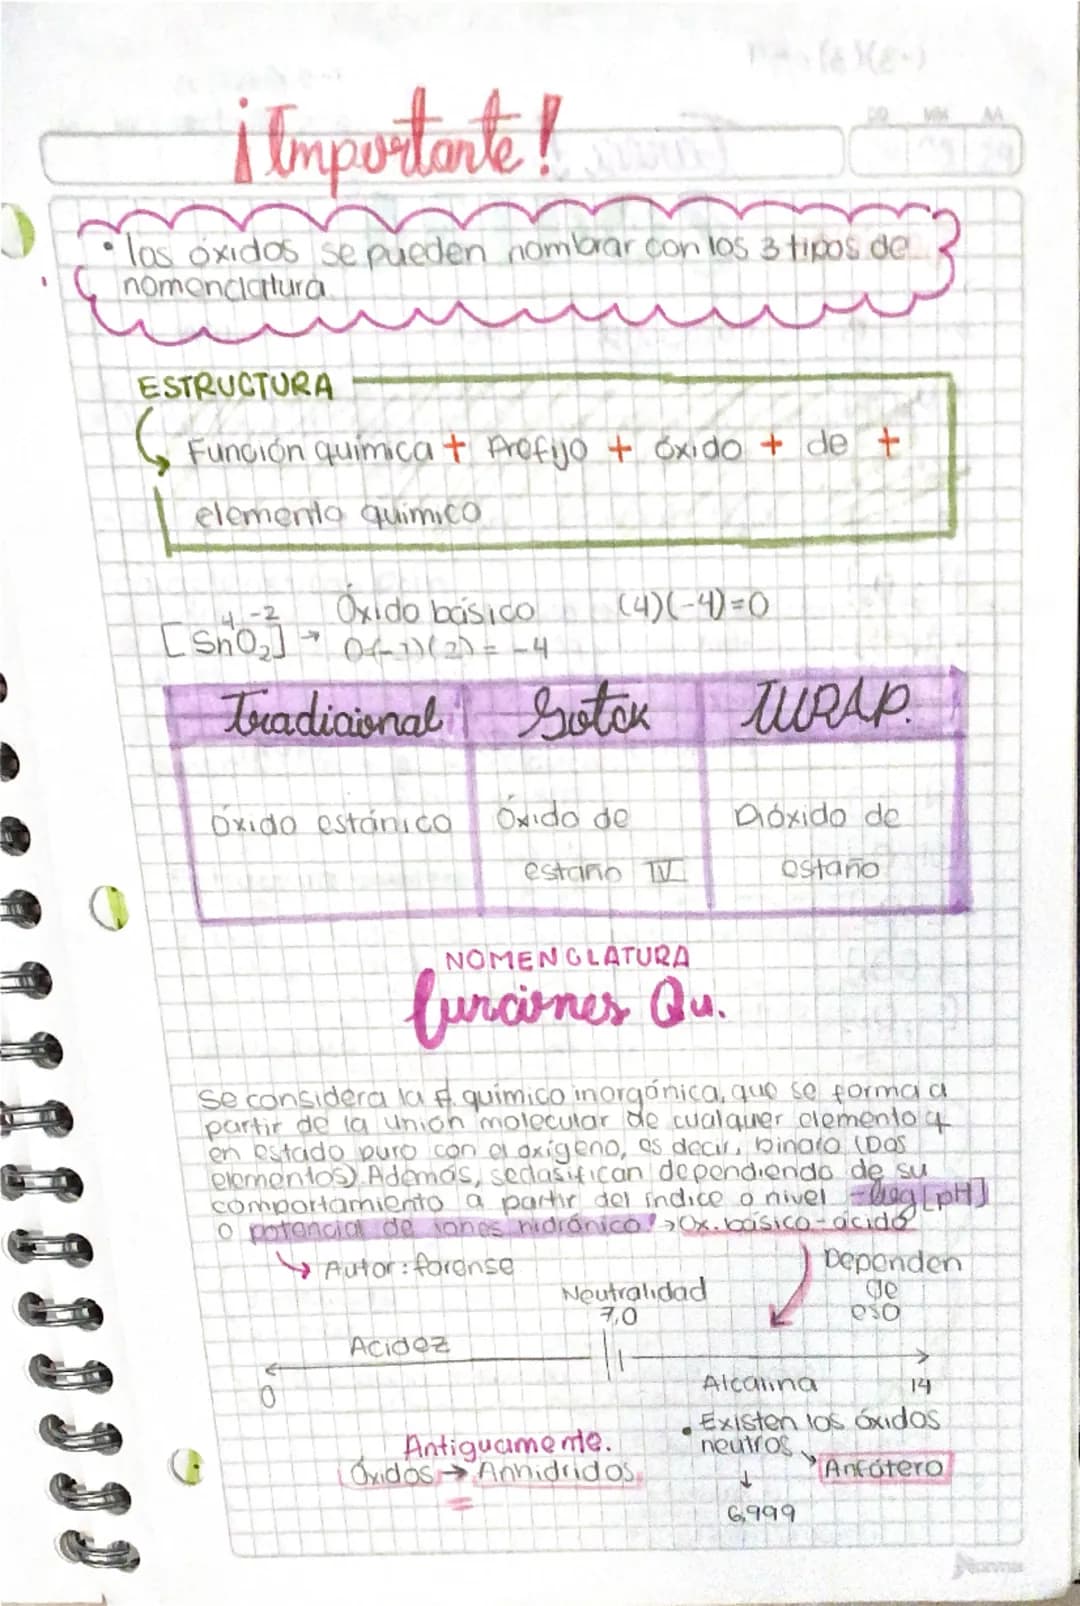 ¡Importante!
DD MM AA
• los óxidos se pueden nombrar con los 3 tipos de
nomenclatura
ESTRUCTURA
Función química + Prefijo + óxido + de +
elemento químico
4 -2 Óxido básico (4)(-4)=0
[SnO₂] → O(-2)(2) = -4
Tradicional Sotck IURAP.
Óxido estánico Óxido de Dióxido de
estaño IV estaño
NOMENCLATURA
funciones Qu.
se considera la f. químico inorgánica, que se forma a
partir de la unión molecular de cualquier elemento q
en estado puro con el oxígeno, es decir, binario (Dos
elementos). Además, se clasifican dependiendo de su
comportamiento a partir del índice o nivel -log[pH]
o potencial de iones hidrónico! → Ox. básico-ácido
↳ Autor: forense Dependen
Neutralidad de
7,0 eso
Acidez
0 Alcalina 14
• Existen los óxidos
Antiguamente. neutros
Óxidos → Anhidridos Anfótero
↓
6,999
Norma